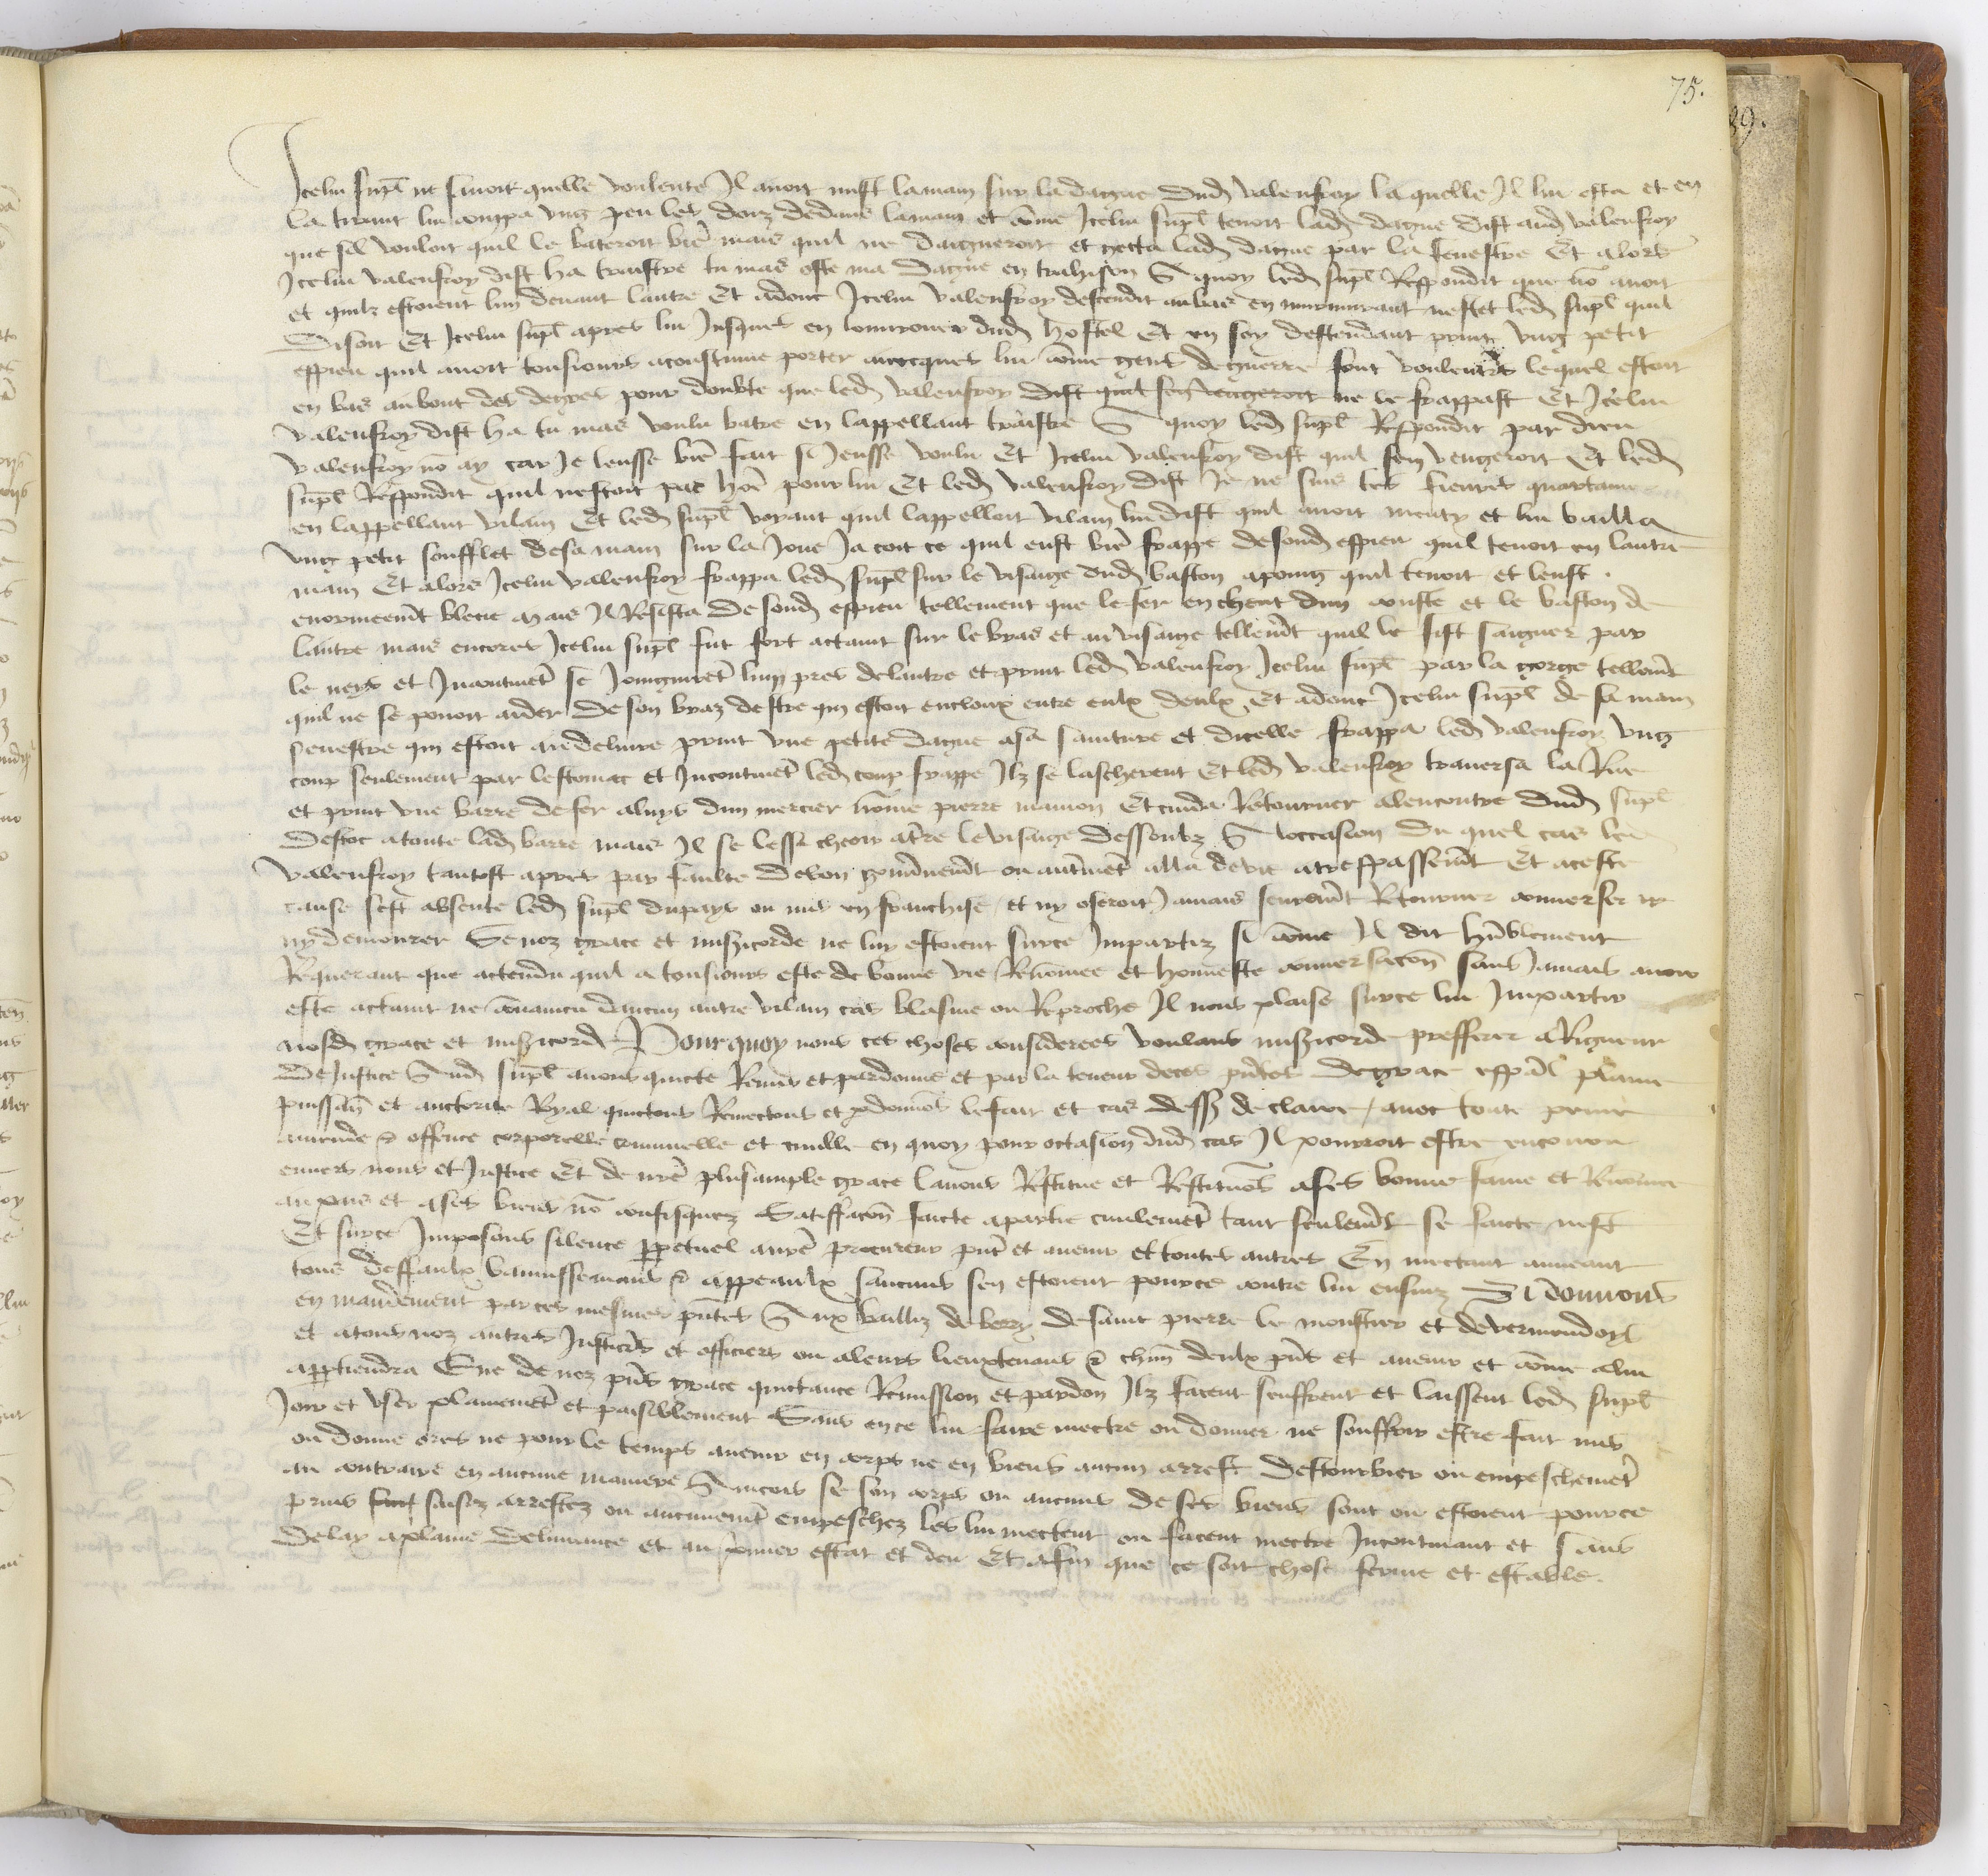 75.
89.
Icelui suppl ne savoit quelle voulente Il avoit mist la main sur la dague dud Valenfroy la quelle Il lui osta et en
la tirant lui couppa ung peu les doiz dedens la main et cõme Icelui suppl tenoit lad dague dist aud Valenfroy
que sil vouloit quil le bateroit biẽ mais quil ne daigneroit et gecta lad dague par la fenestre Et alors
Icelui Valenfroy dist ha traistre tu mas oste ma dague en trahison A quoy led suppl Respondit que nõ avoit
et quilz estoient lun devant lautre Et adonc Icelui Valenfroy descendit au bas en murmurant led suppl quil
disoit Et Icelui suppl apres lui Jusques en louvrouer dud hostel Et en soy deffendant print ung petit
espieu quil avoit tousiours acoustume porter avecques lui cõme gens de guerre font voulentrs lequel estoit
en bas au bout des degres pour doubte que led Valenfroy dist quil sen vengeroit ne le frappast Et Icelui
Valenfroy dist ha tu mas voulu batre en lappellant traistre A quoy led suppl Respondit par dieu
Valenfroy nõ ay car Je leusse biẽ fait si Jeusse voulu Et Icelui Valenfroy dist quil sen vengeroit Et led
suppl Respondit quil nestoit pas hõe pour lui Et led Valenfroy dist Je ne suis tes fievres quartaines
en lappellant vilain Et led suppl voyant quil lappelloit vilain lui dist quil avoit menty et lui bailla
ung petit soufflet de sa main sur la Joue Ja soit ce quil eust biẽ frappe de sond espieu quil tenoit en lautre
main Et alors Icelui Valenfroy frappa led suppl sur le visaige dud baston a poing quil tenoit et leust
enormeemt blecie mais Il Resista de sond espieu tellement que le fer en cheut dun couste et le baston de
lautre mais encores Icelui suppl fut fort actaint sur le bras et au visaige tellemt quil le fist saigner par
le neys et Incontinẽt se Joingnirẽt lun pres de lautre et print led Valenfroy Icelui suppl par la gorge tellemt
quil ne se povoit aider de son braz destre qui estoit encloux entre eulx deulx Et adonc Icelui suppl de sa main
senestre qui estoit au delivre print une petite dague a sa sainture et dicelle frappa led Valenfroy ung
coup seulement par lestomac et Incontinẽt led coup frappe Ilz se lascherent Et led Valenfroy traversa la Rue
et print une barre de fer a luys dun mercier nõme pierre mamon Et cuida Retourner alencontre dud suppl
destoc a toute lad barre mais Il se lessa cheoir a tẽre le visaige dessoubz A loccasion du quel cas led
Valenfroy tantost apres par faulte de bon gouvernemt ou autremẽt alla de vie a trespassemt Et a ceste
cause sest absente led suppl du pays ou mis en franchise et ny oseroit Jamais seuremt Retourner converser
ny demourer Se noz grace et misericorde ne lui estoient sur ce Imparties si cõme Il dit hũblement
Requerant que actendu quil a tousiours este de bonne vie Renõmee et honneste conversacõn sans Jamais avoir
este actaint ne convaincu daucun autre vilain cas blasme ou Reproche Il nous plaise sur ce lui Impartir
nosd grace et misericord Pour quoy nous ces choses considerees voulans misericorde prefferer a Rigueur
de Justice Aud suppl avons quicte Remis et pardonne et par la teneur de ces pñtes de grace espãl plaine
puissañ et auctorite Royal quictons Remectons et pardonnõs le fait et cas dessz declaire / avec toute peine
amende & offence corporelle criminelle et civille en quoy pour occasion dud cas Il pourroit estre encouru
envers nous et Justice Et de nrẽ plus ample grace lavons Restitue et Restituõs a ses bonne fame et Renõmee
au pais et a ses biens nõ confisquez Satiffacõn faicte a partie civilemẽt tant seulemt se faicte nest
Et sur ce Imposons silence perpetuel a nrẽ procureur pñt et avenir et toutes autres En mectant au neant
tous deffaulx bannissemens & appeaulx saucuns sen estoient pour ce contre lui ensuiz Si donnons
en mandement par ces mesmes pñtes Aux bailliz de berry de saint pierre le monstier et de vermendoys
et a tous noz autres Justicirs et officiers ou a leurs lieuxtenans & chũn deulx pñs et avenir et cõme a lui
appartiendra Que de noz pñs grace quictance Remission et pardon Ilz facent seuffrent et laissent led suppl
Joir et user plainemẽt et paisiblement Sans en ce lui faire mectre ou donner ne souffrir estre fait mis
ou donne ores ne pour le temps avenir en corps ne en biens aucun arrest destourbier ou empeschemẽt
au contraire en aucune maniere Aincois se son corps ou aucuns de ses biens sont ou estoient pour ce
prins saisiz arrestez ou aucunemẽt empeschez les lui mectent ou facent mectre Incontinant et sans
delay a plaine delivrance et au pmier estat et deu Et afin que ce soit chose ferme et estable